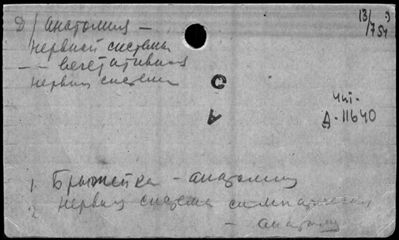 Д/ анатомия —
нервной системы
— - вегетативная
нервн система
13/
754
С
А
Чит.
Д-11640
1. Брыжейка - анатомия
2. нервн система симпатическая
— анатомия